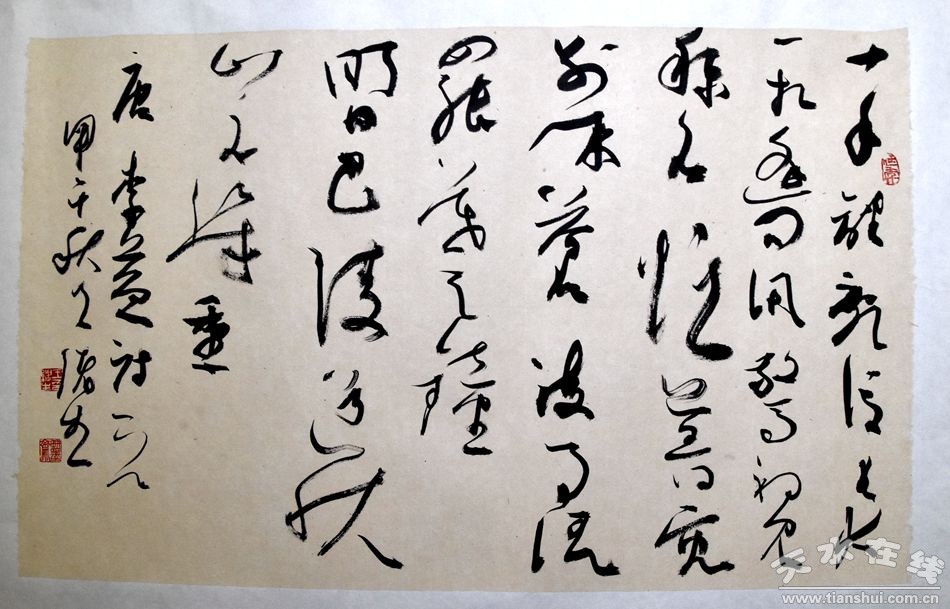 十年離亂後長大
一相逢問姓驚初見
稱名憶舊容
別來滄海事語
罷暮天鐘
明日巴陵道秋
山又幾重
唐李益詩一首
甲午秋月
天水在线
www.tianshui.com.cn